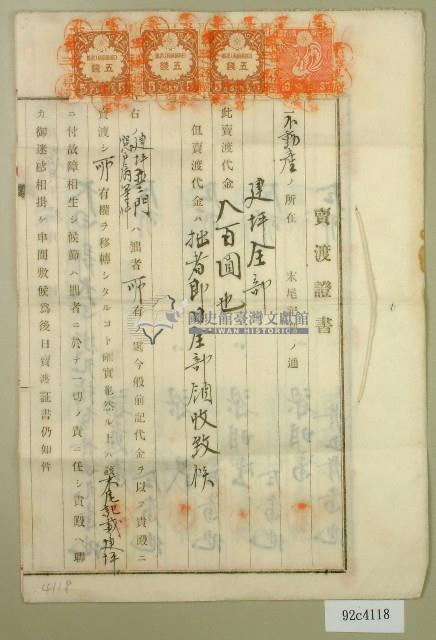 五
錢
五
錢
五
錢
賣渡證書
一不動産ノ所在 末尾
ノ通
建坪全部
此賣渡代金八百圓也
但賣渡代金ハ拙者即日全部領收致候
右ノ建坪
ハ拙者所有ノ處今般前記代金ヲ以テ貴殿ニ
賣渡シ所有權ヲ移轉シタルコト確實也然ル上ハ
末尾記載建坪
ニ付故障相生シ候節ハ拙者ニ於テ一切ノ責ニ任シ貴殿ヘ聊
カ御迷惑相掛ケ申間敷候爲後日賣渡証書仍如件
國史館臺灣文獻館
TAIWAN HISTORICA
4118
92c4118